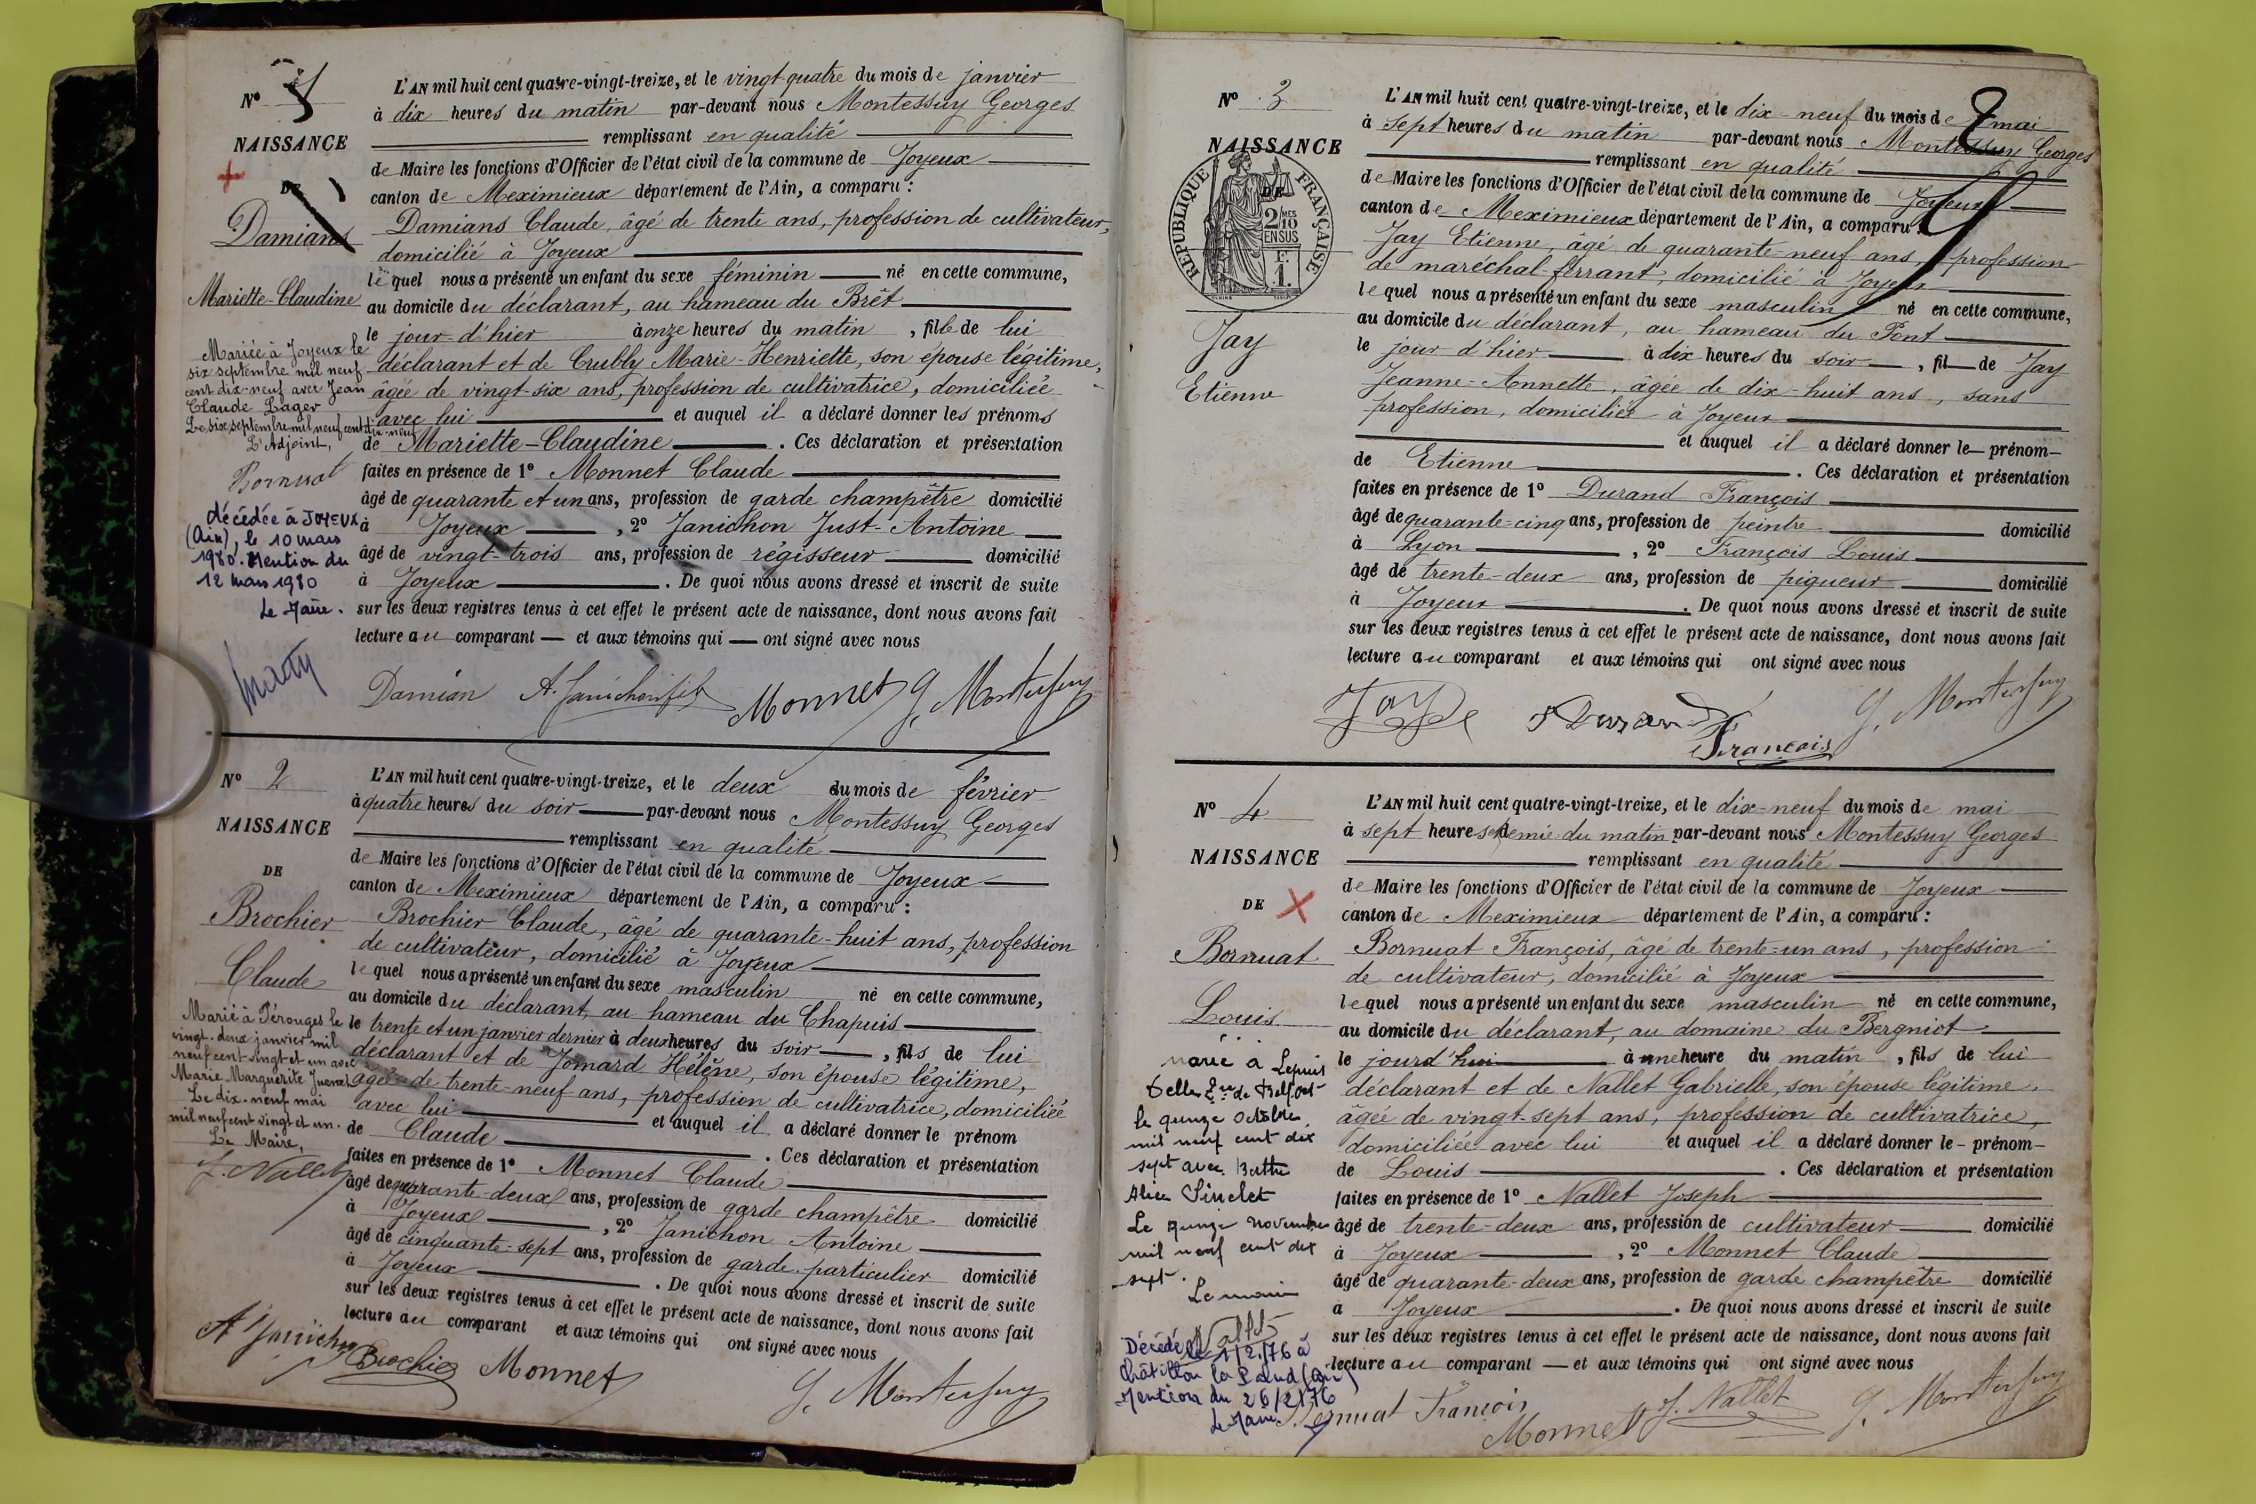 N° 1
NAISSANCE
DE
Damians
Mariette-Claudine
Mariée à Joyeux le
six septembre mil neuf
cent dix-neuf avec Jean
Claude Lager
Le six septembre mil neuf cent dix-neuf
L'Adjoint,
Bornuat
décédée à JOYEUX
(Ain), le 10 mars
1980. Mention du
12 mars 1980
Le Maire.
L'AN mil huit cent quatre-vingt-treize, et le vingt quatre du mois de janvier
à dix heures du matin par-devant nous Montessuy Georges
remplissant en qualité
de Maire les fonctions d'Officier de l'état civil de la commune de Joyeux
canton de Meximieux département de l'Ain, a comparu :
Damians Claude, âgé de trente ans, profession de cultivateur,
domicilié à Joyeux
lequel nous a présenté un enfant du sexe féminin né en cette commune,
au domicile du déclarant, au hameau du Brêt
le jour d'hier à onze heures du matin, fille de lui
déclarant et de Crubly Marie-Henriette, son épouse légitime,
âgée de vingt-six ans, profession de cultivatrice, domiciliée
avec lui et auquel il a déclaré donner les prénoms
de Mariette-Claudine. Ces déclaration et présentation
faites en présence de 1° Monnet Claude
âgé de quarante et un ans, profession de garde champêtre domicilié
à Joyeux, 2° Janichon Just-Antoine
âgé de vingt-trois ans, profession de régisseur domicilié
à Joyeux. De quoi nous avons dressé et inscrit de suite
sur les deux registres tenus à cet effet le présent acte de naissance, dont nous avons fait
lecture au comparant et aux témoins qui ont signé avec nous
Damian A. Janichon fils Monnet G. Montessuy
N° 2
NAISSANCE
DE
Brochier
Claude
Marié à Pérouges le
vingt-deux janvier mil
neuf cent vingt et un avec
Marie Marguerite Juenet
Le dix-neuf mai
mil neuf cent vingt et un.
Le Maire,
J. Nallet
L'AN mil huit cent quatre-vingt-treize, et le deux du mois de février
à quatre heures du soir par-devant nous Montessuy Georges
remplissant en qualité
de Maire les fonctions d'Officier de l'état civil de la commune de Joyeux
canton de Meximieux département de l'Ain, a comparu :
Brochier Claude, âgé de quarante-huit ans, profession
de cultivateur, domicilié à Joyeux
lequel nous a présenté un enfant du sexe masculin né en cette commune,
au domicile du déclarant, au hameau du Chapuis
le trente et un janvier dernier à deux heures du soir, fils de lui
déclarant et de Jomard Hélène, son épouse légitime,
âgée de trente-neuf ans, profession de cultivatrice, domiciliée
avec lui et auquel il a déclaré donner le prénom
de Claude. Ces déclaration et présentation
faites en présence de 1° Monnet Claude
âgé de quarante-deux ans, profession de garde champêtre domicilié
à Joyeux, 2° Janichon Antoine
âgé de cinquante-sept ans, profession de garde particulier domicilié
à Joyeux. De quoi nous avons dressé et inscrit de suite
sur les deux registres tenus à cet effet le présent acte de naissance, dont nous avons fait
lecture au comparant et aux témoins qui ont signé avec nous
A Janichon Brochier Monnet G. Montessuy
N° 3
NAISSANCE
DE
RÉPUBLIQUE FRANÇAISE
2 MES 10 EN SUS
F. 1.
Jay
Etienne
L'AN mil huit cent quatre-vingt-treize, et le dix-neuf du mois de mai
à sept heures du matin par-devant nous Montessuy Georges
remplissant en qualité
de Maire les fonctions d'Officier de l'état civil de la commune de Joyeux
canton de Meximieux département de l'Ain, a comparu :
Jay Etienne, âgé de quarante-neuf ans, profession
de maréchal-ferrant, domicilié à Joyeux
lequel nous a présenté un enfant du sexe masculin né en cette commune,
au domicile du déclarant, au hameau du Pont
le jour d'hier à dix heures du soir, fil de Jay
Jeanne-Annette, âgée de dix-huit ans, sans
profession, domiciliée à Joyeux
et auquel il a déclaré donner le prénom
de Etienne. Ces déclaration et présentation
faites en présence de 1° Durand François
âgé de quarante-cinq ans, profession de peintre domicilié
à Lyon, 2° François Louis
âgé de trente-deux ans, profession de piqueur domicilié
à Joyeux. De quoi nous avons dressé et inscrit de suite
sur les deux registres tenus à cet effet le présent acte de naissance, dont nous avons fait
lecture au comparant et aux témoins qui ont signé avec nous
Jay F Durand François G. Montessuy
N° 4
NAISSANCE
DE
Bornuat
Louis
Marié à Lepuis
Delle Ter de Belfort
le quinze octobre
mil neuf cent dix
sept avec Berthe
Alice
Le quinze novembre
mil neuf cent dix
sept.
Le maire
Nallet
Décédé le 1/2/76 à
Châtillon la Palud (Ain)
Mention du 26/2/76
Le Maire
L'AN mil huit cent quatre-vingt-treize, et le dix-neuf du mois de mai
à sept heures et demie du matin par-devant nous Montessuy Georges
remplissant en qualité
de Maire les fonctions d'Officier de l'état civil de la commune de Joyeux
canton de Meximieux département de l'Ain, a comparu :
Bornuat François, âgé de trente-un ans, profession
de cultivateur, domicilié à Joyeux
lequel nous a présenté un enfant du sexe masculin né en cette commune,
au domicile du déclarant, au domaine du Bergniot
le jourd'hui à une heure du matin, fils de lui
déclarant et de Nallet Gabrielle, son épouse légitime,
âgée de vingt-sept ans, profession de cultivatrice,
domiciliée avec lui et auquel il a déclaré donner le prénom
de Louis. Ces déclaration et présentation
faites en présence de 1° Nallet Joseph
âgé de trente-deux ans, profession de cultivateur domicilié
à Joyeux, 2° Monnet Claude
âgé de quarante-deux ans, profession de garde champêtre domicilié
à Joyeux. De quoi nous avons dressé et inscrit de suite
sur les deux registres tenus à cet effet le présent acte de naissance, dont nous avons fait
lecture au comparant et aux témoins qui ont signé avec nous
Bornuat François Monnet J. Nallet G. Montessuy